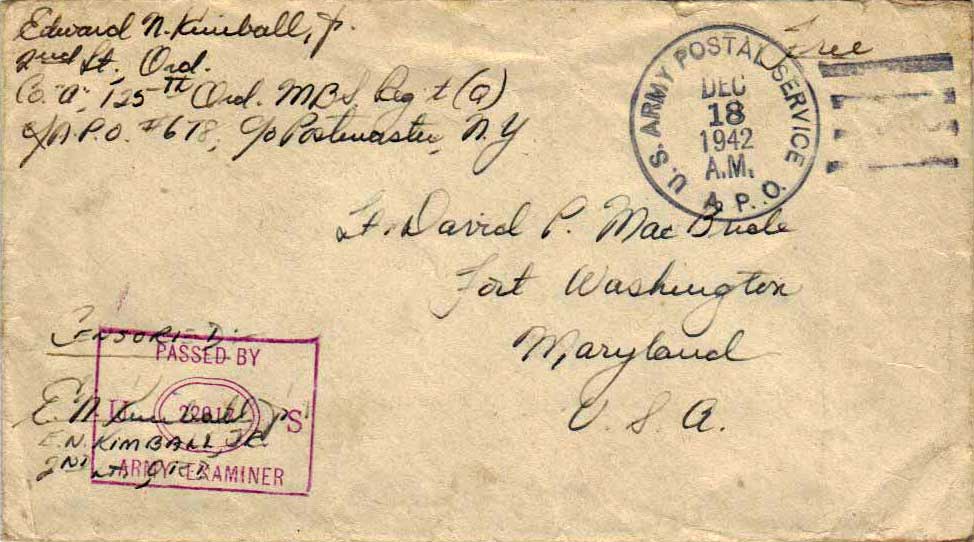 Edward N. Kimball, Jr.
2nd Lt. Ord.
Co. "A", 125th Ord. M.B.S. Reg't (Q)
A.P.O. #678, c/o Postmaster, N.Y.
Free
U.S. ARMY POSTAL SERVICE
DEC
18
1942
A.M.
A.P.O.
Lt. David P. MacBride
Fort Washington
Maryland
U. S. A.
CENSORED:
PASSED BY
U S
E. N. Kimball, Jr.
E. N. KIMBALL, JR.
2ND LT. ORD.
ARMY EXAMINER